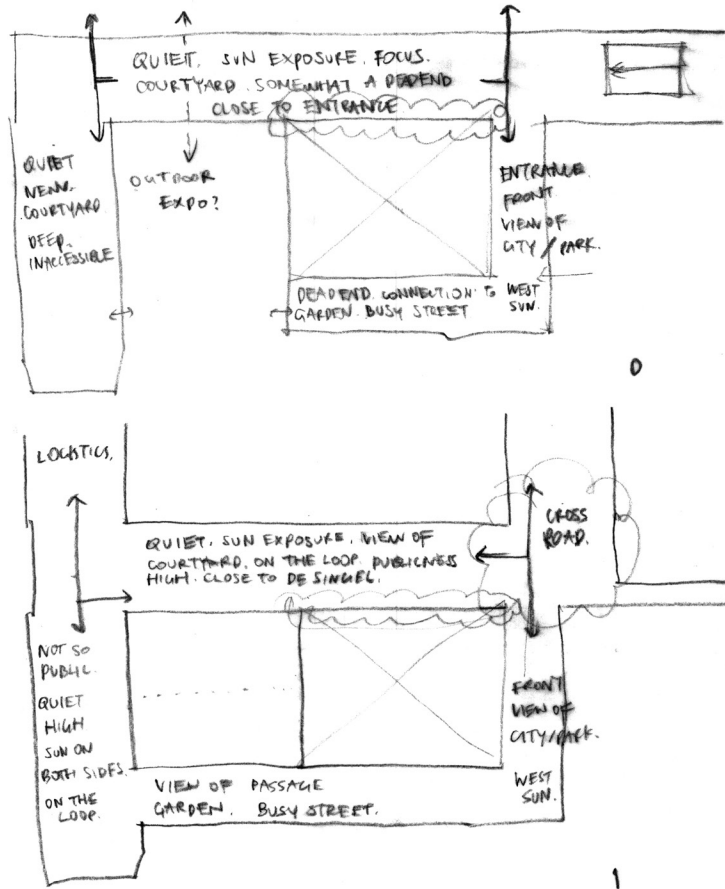 QUIET. SUN EXPOSURE. FOCUS.
COURTYARD. SOMEWHAT A DEADEND
CLOSE TO ENTRANCE
QUIET
COURTYARD
DEEP.
INACCESSIBLE
OUTDOOR
EXPO?
ENTRANCE.
FRONT
VIEW OF
CITY / PARK.
WEST
SUN.
DEADEND. CONNECTION TO
GARDEN. BUSY STREET
0
LOGISTICS.
QUIET. SUN EXPOSURE. VIEW OF
COURTYARD. ON THE LOOP. PUBLICNESS
HIGH. CLOSE TO DE SINGEL.
CROSS
ROAD.
NOT SO
PUBLIC.
QUIET
HIGH
SUN ON
BOTH SIDES.
ON THE
LOOP.
FRONT
VIEW OF
CITY/PARK.
WEST
SUN.
VIEW OF PASSAGE
GARDEN. BUSY STREET.
1